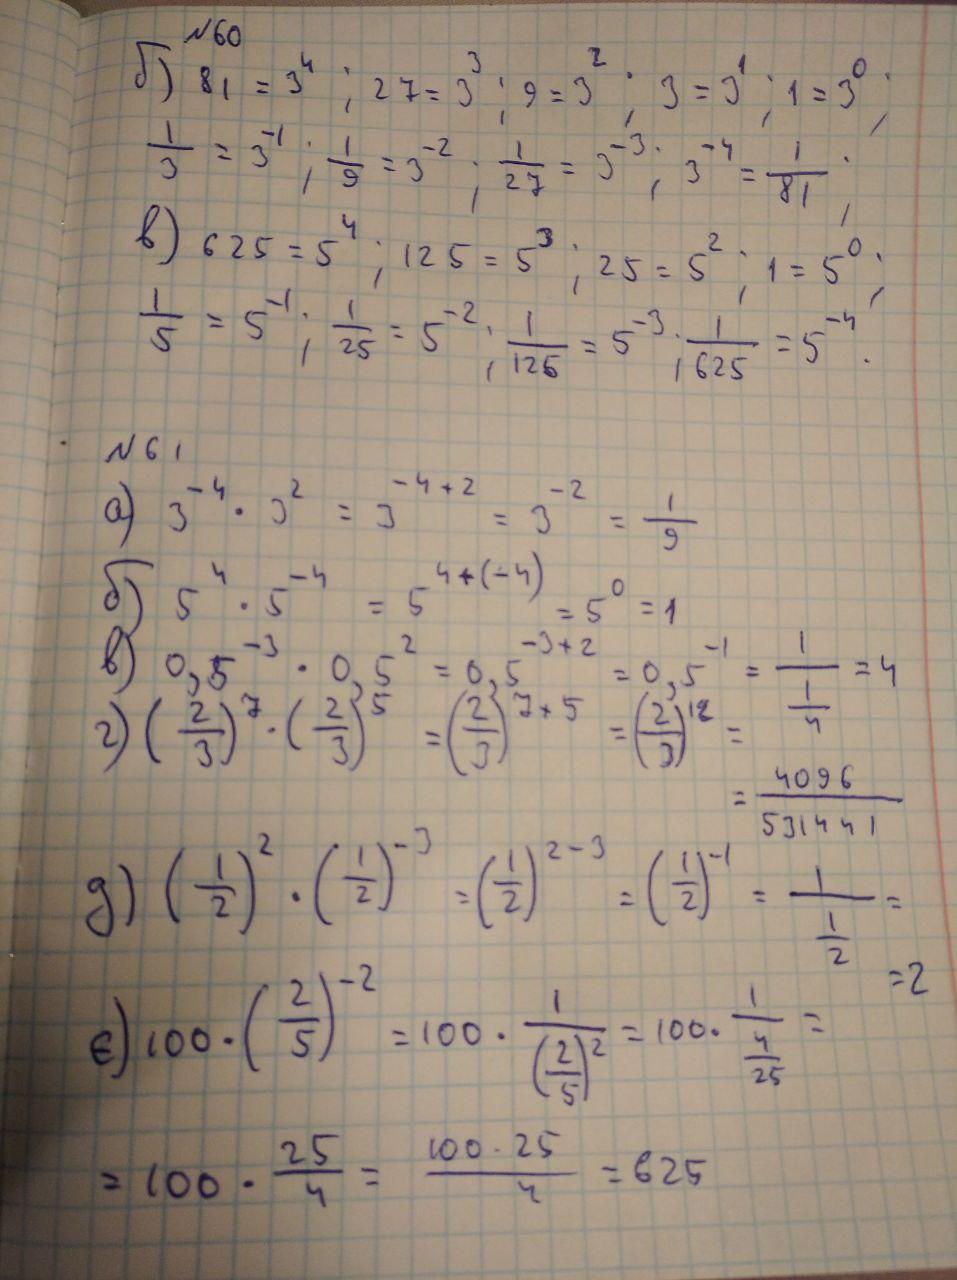 №60
б) 81 = 3⁴ ; 27 = 3³ ; 9 = 3² ; 3 = 3¹ ; 1 = 3⁰ ;
1/3 = 3⁻¹ ; 1/9 = 3⁻² ; 1/27 = 3⁻³ ; 3⁻⁴ = 1/81 ;
в) 625 = 5⁴ ; 125 = 5³ ; 25 = 5² ; 1 = 5⁰ ;
1/5 = 5⁻¹ ; 1/25 = 5⁻² ; 1/125 = 5⁻³ ; 1/625 = 5⁻⁴ .
№61
а) 3⁻⁴ · 3² = 3⁻⁴⁺² = 3⁻² = 1/9
б) 5⁴ · 5⁻⁴ = 5⁴⁺⁽⁻⁴⁾ = 5⁰ = 1
в) 0,5⁻³ · 0,5² = 0,5⁻³⁺² = 0,5⁻¹ = 1/(1/4) = 4
г) (2/3)⁷ · (2/3)⁵ = (2/3)⁷⁺⁵ = (2/3)¹² =
= 4096/531441
д) (1/2)² · (1/2)⁻³ = (1/2)²⁻³ = (1/2)⁻¹ = 1/(1/2) =
= 2
е) 100 · (2/5)⁻² = 100 · 1/(2/5)² = 100 · 1/(4/25) =
= 100 · 25/4 = (100 · 25)/4 = 625